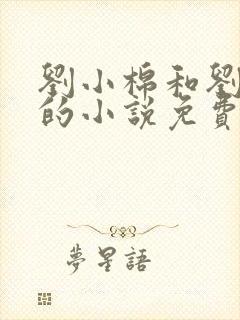 劉小棉和劉
的小說免費
夢星語